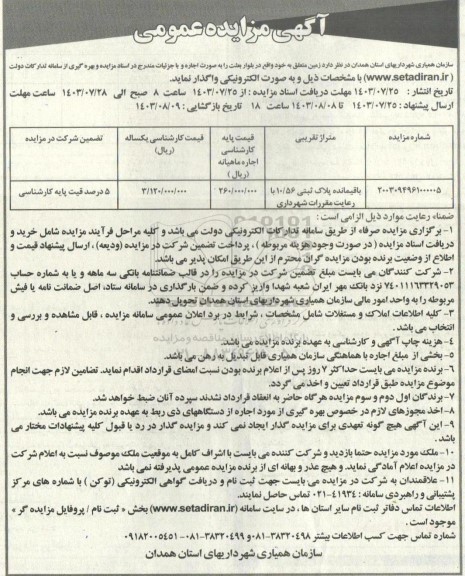 آگهی مزایده عمومی
سازمان همیاری شهرداریهای استان همدان در نظر دارد زمین متعلق به خود واقع در بلوار بعثت را به صورت اجاره و با جزئیات مندرج در اسناد مزایده و بهره گیری از سامانه تدارکات دولت
(www.setadiran.ir) با مشخصات ذیل و به صورت الکترونیکی واگذار نماید.
تاریخ انتشار : ۱۴۰۳/۰۷/۲۵ مهلت دریافت اسناد مزایده : از ۱۴۰۳/۰۷/۲۵ ساعت ۸ صبح الی ۱۴۰۳/۰۷/۲۸ ساعت مهلت
ارسال پیشنهاد : ۱۴۰۳/۰۷/۲۵ تا ۱۴۰۳/۰۸/۰۸ ساعت ۱۸ تاریخ بازگشایی : ۱۴۰۳/۰۸/۰۹
شماره مزایده | متراژ تقریبی | قیمت پایه کارشناسی اجاره ماهیانه (ریال) | قیمت کارشناسی یکساله (ریال) | تضمین شرکت در مزایده
۲۰۰۳۰۹۴۹۶۱۰۰۰۰۰۵ | باقیمانده پلاک ثبتی ۱۰/۵۶ با رعایت مقررات شهرداری | ۲۶۰/۰۰۰/۰۰۰ | ۳/۱۲۰/۰۰۰/۰۰۰ | ۵ درصد قیت پایه کارشناسی
ضمناً رعایت موارد ذیل الزامی است :
۱- برگزاری مزایده صرفاً از طریق سامانه تدارکات الکترونیکی دولت می باشد و کلیه مراحل فرآیند مزایده شامل خرید و
دریافت اسناد مزایده ( در صورت وجود هزینه مربوطه ) ، پرداخت تضمین شرکت در مزایده (ودیعه) ، ارسال پیشنهاد قیمت و
اطلاع از وضعیت برنده بودن مزایده گران محترم از این طریق امکان پذیر می باشد.
۲- شرکت کنندگان می بایست مبلغ تضمین شرکت در مزایده را در قالب ضمانتنامه بانکی سه ماهه و یا به شماره حساب
۷۴۰۱۱۱۶۳۳۲۹۰۵۳ نزد بانک مهر ایران شعبه شهدا واریز کرده و ضمن بارگذاری در سامانه ستاد، اصل ضمانت نامه یا فیش
مربوطه را به واحد امور مالی سازمان همیاری شهرداریهای استان همدان تحویل دهند.
۳- کلیه اطلاعات املاک و مستغلات شامل مشخصات ، شرایط در برد اعلان عمومی سامانه مزایده ، قابل مشاهده و بررسی و
انتخاب می باشد .
۴- هزینه چاپ آگهی و کارشناسی به عهده برنده مزایده می باشد.
۵- بخشی از مبلغ اجاره با هماهنگی سازمان همیاری قابل تبدیل به رهن می باشد.
۶- برنده مزایده می بایست حداکثر ۷ روز پس از اعلام برنده بودن نسبت امضای قرارداد اقدام نماید. تضامین لازم جهت انجام
موضوع مزایده طبق قرارداد تعیین و اخذ می گردد.
۷- برندگان اول دوم و سوم مزایده هرگاه حاضر به انعقاد قرارداد نشدند سپرده آنان ضبط خواهد شد.
۸- اخذ مجوزهای لازم در خصوص بهره گیری از مورد اجاره از دستگاههای ذی ربط به عهده برنده مزایده می باشد.
۹- این آگهی هیچ گونه تعهدی برای مزایده گذار ایجاد نمی کند و مزایده گذار در رد یا قبول کلیه پیشنهادات مختار می
باشد .
۱۰- ملک مورد مزایده حتما بازدید و شرکت کننده می بایست با اشراف کامل به موقعیت ملک موصوف نسبت به اعلام شرکت
در مزایده اعلام آمادگی نماید. و هیچ عذر و بهانه ای از برنده مزایده عمومی پذیرفته نمی باشد
۱۱- علاقمندان به شرکت در مزایده می بایست جهت ثبت نام و دریافت گواهی الکترونیکی (توکن) با شماره های مرکز
پشتیبانی و راهبردی سامانه : ۴۱۹۳۴-۰۲۱ تماس حاصل نمایند.
اطلاعات تماس دفاتر ثبت نام سایر استان ها ، در سایت سامانه (www.setadiran.ir) بخش « ثبت نام / پروفایل مزایده گر »
موجود است .
شماره تماس جهت کسب اطلاعات بیشتر ۳۸۳۲۰۴۹۸-۰۸۱ و ۳۸۳۲۰۴۹۹-۰۸۱ - ۰۹۱۸۲۰۰۵۴۵۱
سازمان همیاری شهرداریهای استان همدان